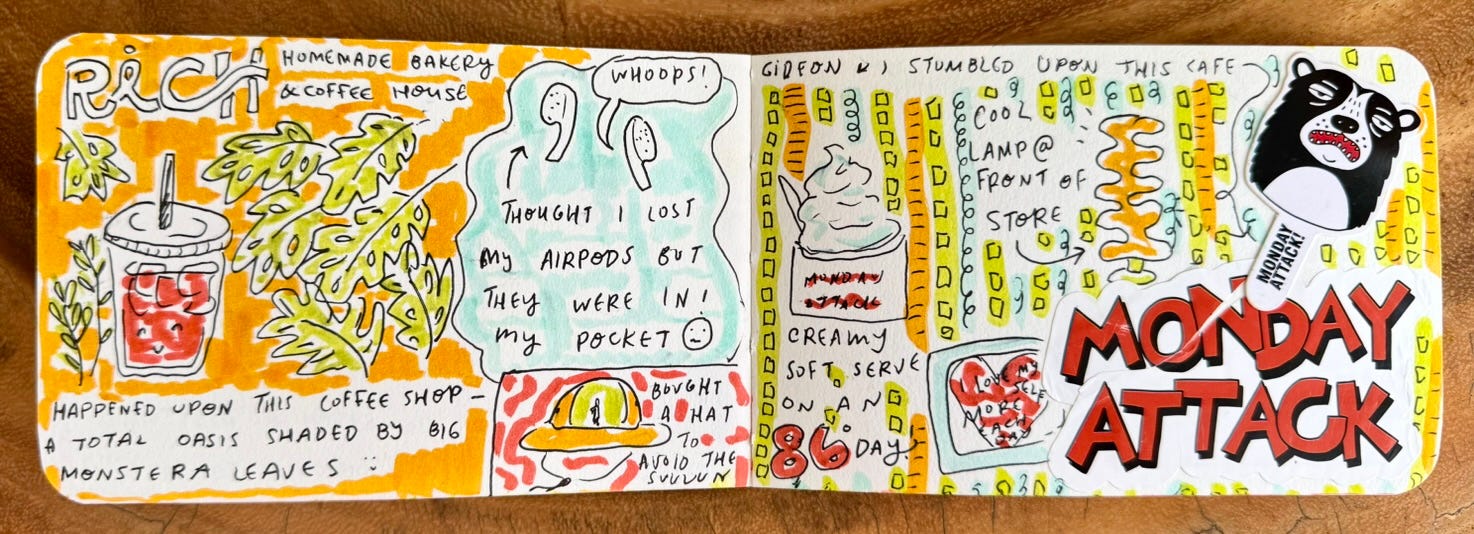 RiCH
HOMEMADE BAKERY
& COFFEE HOUSE
HAPPENED UPON THIS COFFEE SHOP –
A TOTAL OASIS SHADED BY BIG
MONSTERA LEAVES
WHOOPS!
THOUGHT I LOST
MY AIRPODS BUT
THEY WERE IN!
MY POCKET
BOUGHT
A HAT
TO
AVOID THE
SUUUUN
GIDEON & I STUMBLED UPON THIS CAFE
COOL
LAMP @
FRONT OF
STORE
MONDAY
ATTACK
CREAMY
SOFT SERVE
ON AN
86° DAY!
I LOVE MY
SELF
MORE
EACH
DAY
MONDAY
ATTACK!
MONDAY
ATTACK